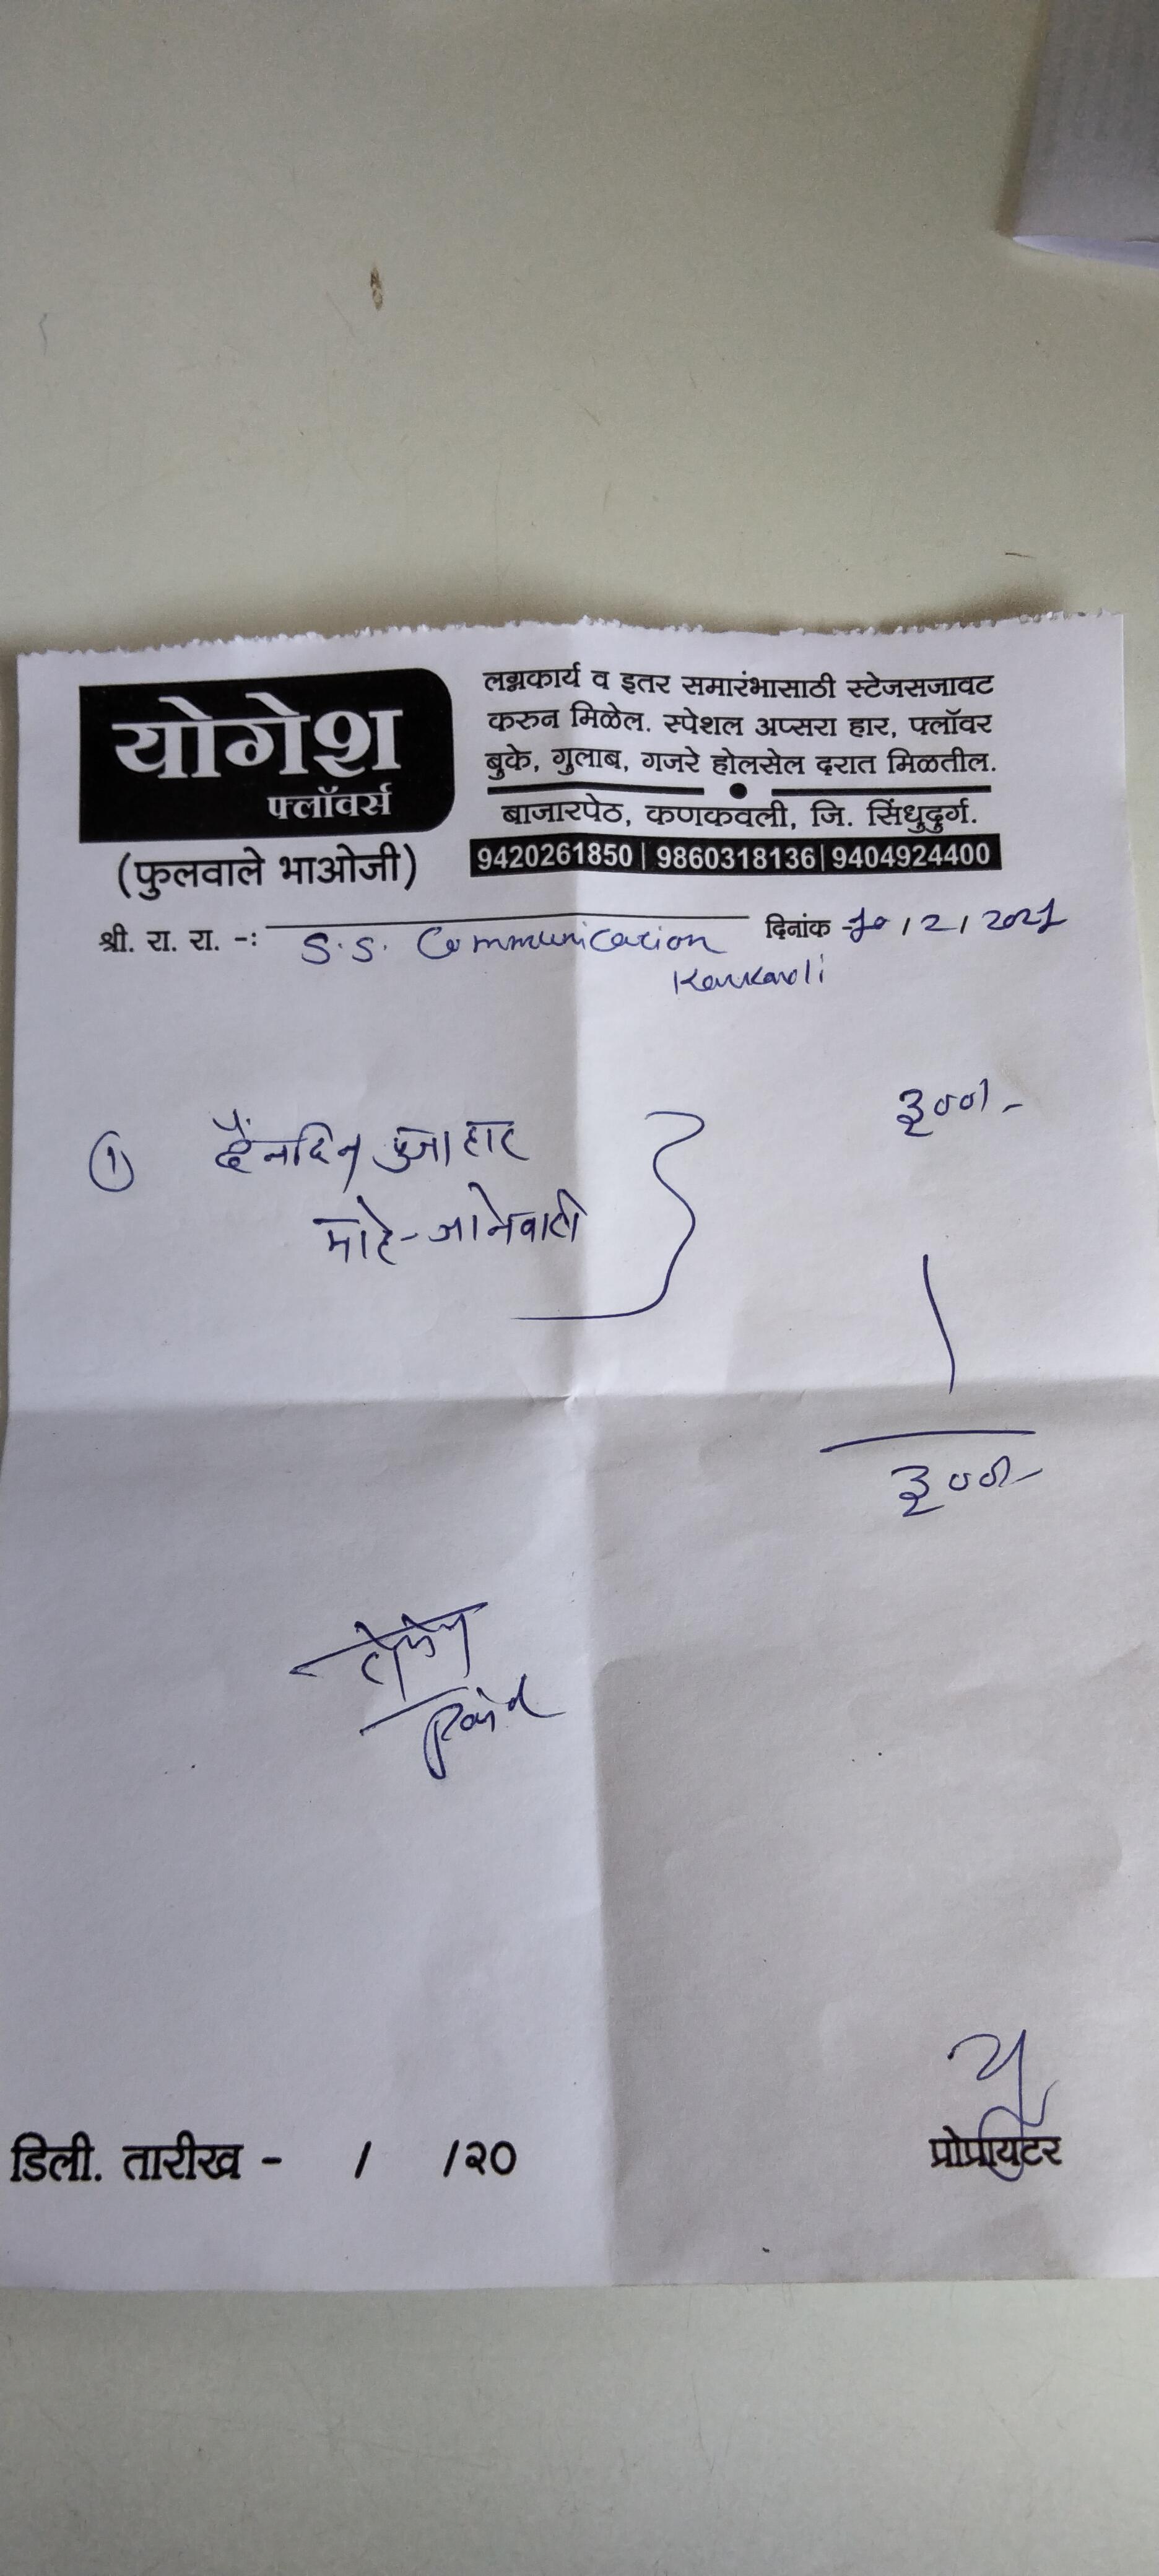 योगेश
फ्लॉवर्स
(फुलवाले भाओजी)
लग्नकार्य व इतर समारंभासाठी स्टेजसजावट
करुन मिळेल. स्पेशल अप्सरा हार, फ्लॉवर
बुके, गुलाब, गजरे होलसेल दरात मिळतील.
बाजारपेठ, कणकवली, जि. सिंधुदुर्ग.
9420261850 | 9860318136 | 9404924400
श्री. रा. रा. -: S.S. Communication दिनांक - 10/2/2021
Kankavli
① दैनंदिन पुजा हार ३००/-
माहे-जानेवारी
३००/-
Paid
डिली. तारीख - / /२०
प्रोप्रायटर